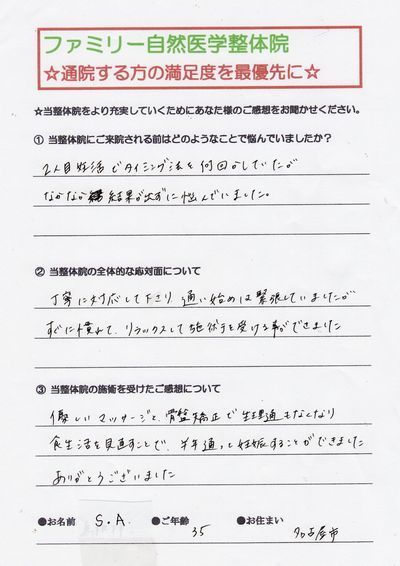 ファミリー自然医学整体院
☆通院する方の満足度を最優先に☆
☆当整体院をより充実していくためにあなた様のご感想をお聞かせください。
① 当整体院にご来院される前はどのようなことで悩んでいましたか？
2人目妊活でタイミング法を何回かしていたが
なかなか結果が出ずに悩んでいました。
② 当整体院の全体的な応対面について
丁寧に対応して下さり 通い始めは緊張していましたが
すぐに慣れて、リラックスして施術を受ける事ができました
③ 当整体院の施術を受けたご感想について
優しいマッサージと、骨盤矯正で生理痛もなくなり
食生活を見直すことで、半年通って妊娠することができました
ありがとうございました
●お名前 S.A. ●ご年齢 35 ●お住まい 名古屋市